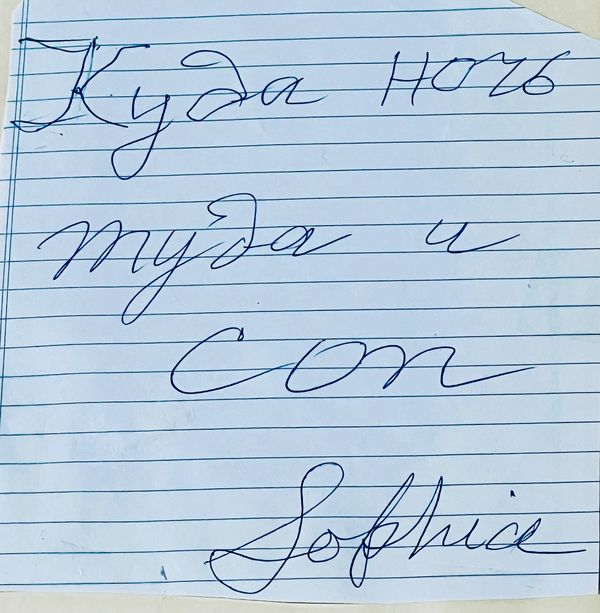 Куда ночь
туда и
сон
Sophia